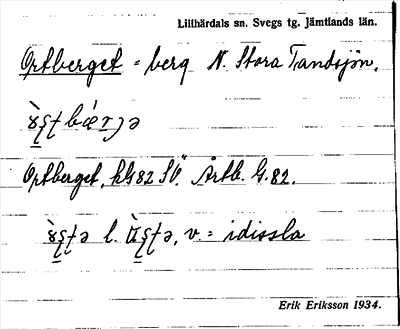 Lillhärdals sn. Svegs tg. Jämtlands län.
Ortberget = berg N. Stora Tandsjön.
Ortberget, kG82 SV. Ärtb. G. 82.
l. v. = idissla
Erik Eriksson 1934.